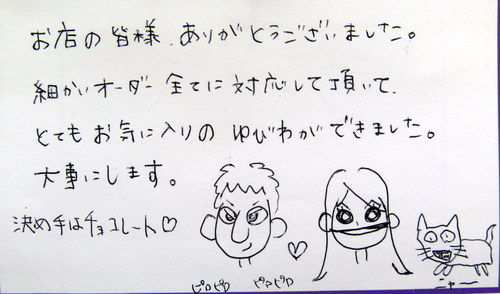 お店の皆様、ありがとうございました。
細かいオーダー全てに対応して頂いて、
とてもお気に入りのゆびわができました。
大事にします。
決め手はチョコレート♡
ピロピロ ピロピロ
ニャー